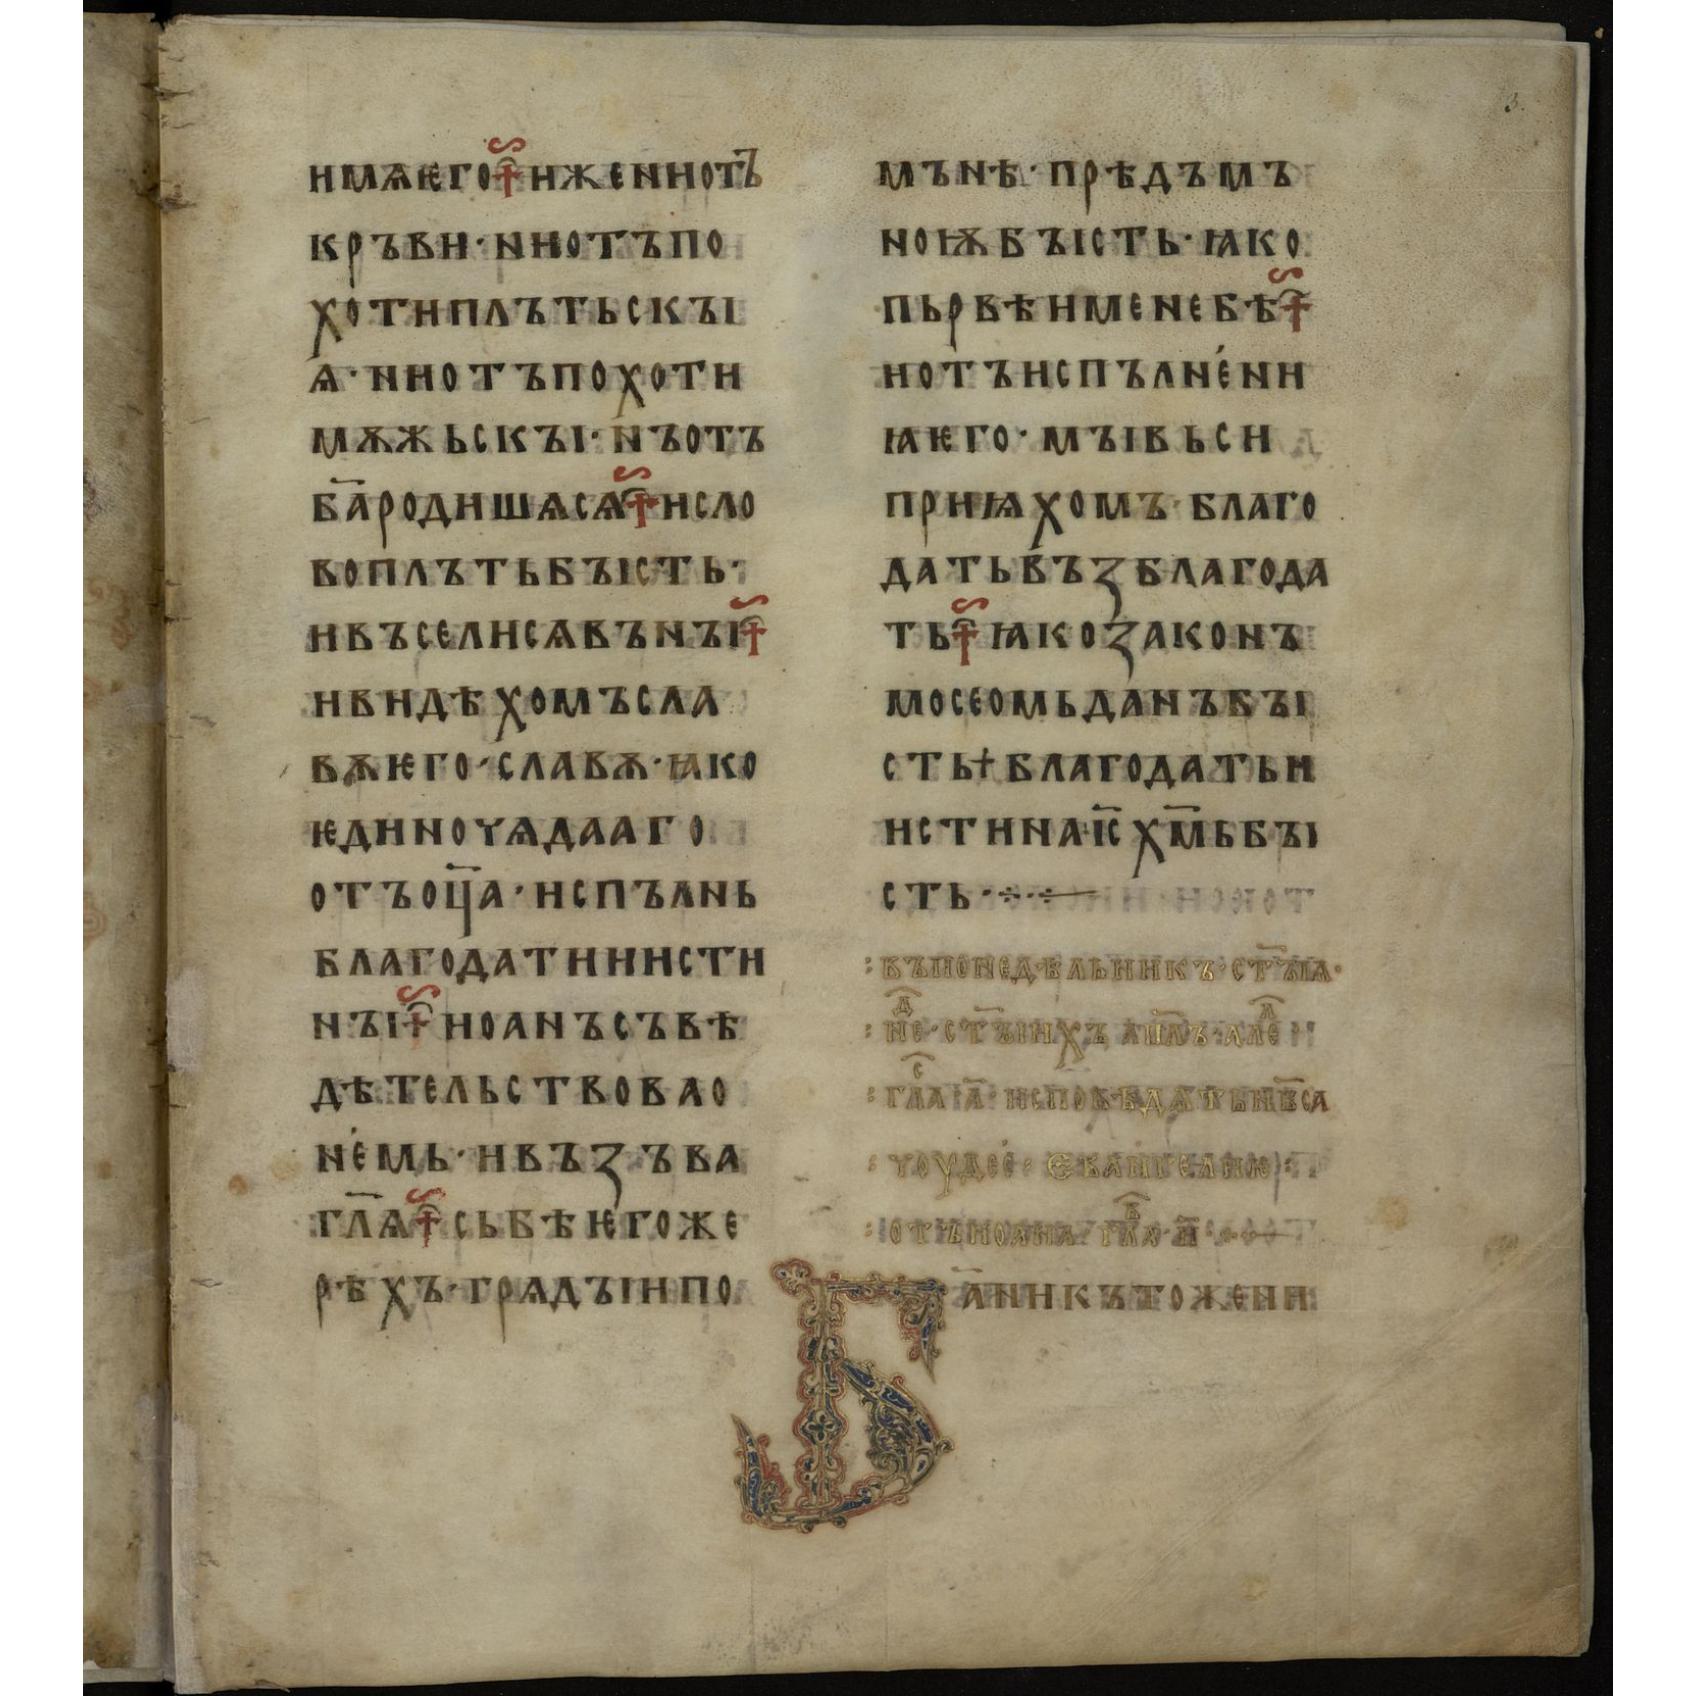 3.
имѧѥго ижении отъ
кръви· ни отъ по
хоти плътьскꙑ
ѧ· ни отъ похоти
мѫжьскꙑ· нъ отъ
б҃а родишѧ сѧ и сло
во плъть бꙑсть·
и въсели сѧ въ нꙑ
и видѣхомъ сла
вѫ ѥго· славѫ· ꙗко
ѥдиночѧдааго
отъ оц҃а· испълнь
благодати и исти
нꙑ иоанъ съвѣ
дѣтельствова о
немь· и възъва
гл҃ѧ сь бѣ ѥгоже
рѣхъ· грѧдꙑи по
мънѣ· прѣдъ мъ
ноѭ бꙑсть· ꙗко
пьрвѣи мене бѣ
и отъ испълнени
ꙗ ѥго· мꙑ вьси
приѩхомъ· благо
дать въз благода
ть ꙗко законъ
мосеомь данъ бꙑ
сть + благодать и
истина іс҃ хм҃ь бꙑ
сть·
въ понедѣльникъ· ст҃ꙑꙗ·
не҃д· ст҃ꙑихъ ап҃лъ· але҃л
гла҃с а҃· исповѣдѧть нб҃са
чоудес· еванг҃елиѥ
отъ иоана гла҃в· и҃·
Б҃а никътоже ни